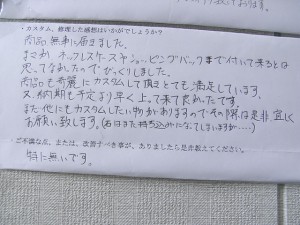 ・カスタム、修理した感想はいかがでしょうか？
商品無事に届きました。
まさか チェックスケースやショッピングバックまで付いて来るとは
思ってなかったのでびっくりしました。
商品も綺麗にカスタムして頂きとても満足しています。
又、納期も予定より早く上って来て良かったです。
また他にもカスタムしたい物がありますのでその際は是非宜しく
お願い致します。(次はまた持ち込みになってしまいますが…)
・ご不満な点、または、改善すべき事が、ありましたら是非教えてください。
特に無いです。